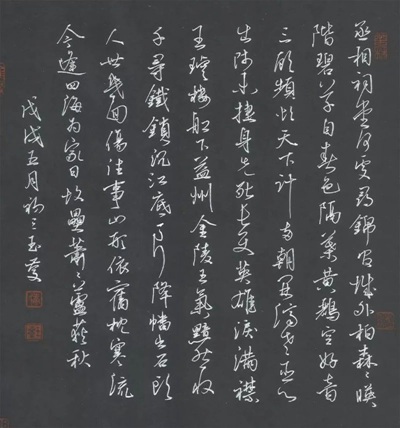 丞相祠堂何處尋錦官城外柏森々映
階碧草自春色隔葉黃鸝空好音
三顧頻煩天下計兩朝開濟老臣心
出師未捷身先死長使英雄淚滿襟
王濬樓船下益州金陵王氣黯然收
千尋鐵鎖沉江底一片降幡出石頭
人世幾回傷往事山形依舊枕寒流
今逢四海為家日故壘蕭々蘆荻秋
戊戌五月初三玉